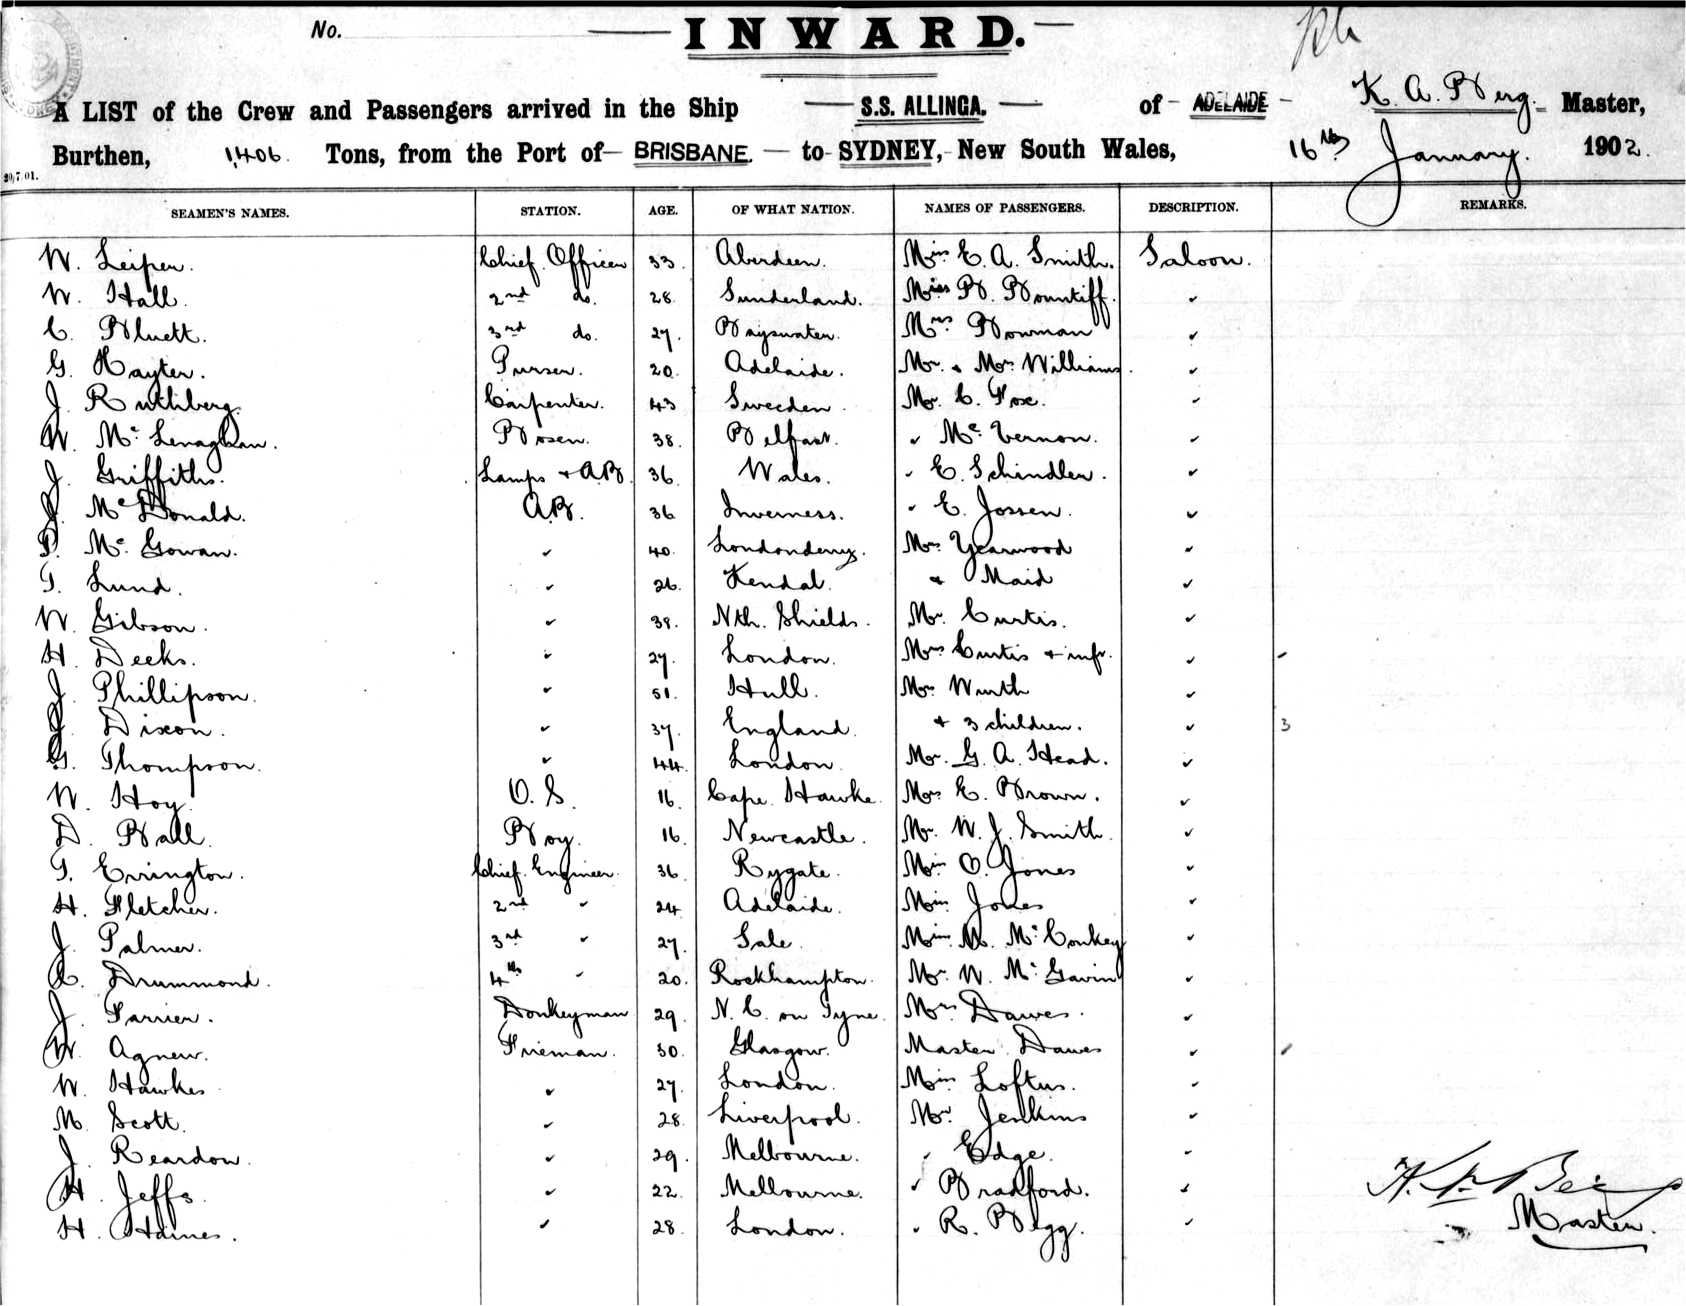 No.
INWARD.
A LIST of the Crew and Passengers arrived in the Ship S.S. ALLINGA. of ADELAIDE K. A. Berg. Master,
Burthen, 1,406. Tons, from the Port of BRISBANE. to SYDNEY, New South Wales, 16th January. 1902.
20/7/01.
SEAMEN'S NAMES. STATION. AGE. OF WHAT NATION. NAMES OF PASSENGERS. DESCRIPTION. REMARKS.
W. Leiper. Chief Officer 33. Aberdeen. Miss E. A. Smith. Saloon.
W. Hall. 2nd do. 28. Sunderland. Miss B. Bountiff. "
C. Bluett. 3rd do. 27. Bayswater. Mrs Bowman "
G. Hayter. Purser. 20. Adelaide. Mr. & Mrs Williams. "
J. Ruthberg. Carpenter. 43 Sweeden. Mr. C. Fox. "
W. Mc Lenaghan. Bosen. 38. Belfast. " Mc Vernon. "
J. Griffiths. Lamps & AB. 36. Wales. " E. Schindler. "
J. Mc Donald. AB. 36 Inverness. " E. Jossen. "
P. Mc Gowan. " 40. Londonderry. Mrs Yearwood "
T. Lund. " 26. Kendal. & Maid "
W. Gibson. " 38. Nth. Shields. Mr. Curtis. "
H. Deeks. " 27. London. Mrs Curtis & inft. "
J. Phillipson. " 51. Hull. Mrs Wurth "
J. Dixon. " 37. England. & 3 children. " 3
G. Thompson. " 44. London. Mr. G. A. Head. "
W. Hoy. O. S. 16. Cape Hawke. Mrs E. Brown. "
D. Ball. Boy. 16. Newcastle. Mr. W. J. Smith. "
T. Errington. Chief Engineer. 36. Rygate. Miss O. Jones "
H. Fletcher. 2nd " 24. Adelaide. Miss Jones "
J. Palmer. 3rd " 27. Sale. Miss M. Mc Conkey "
R. Drummond. 4th " 20. Rockhampton. Mr. W. Mc Gavin "
J. Farrier. Donkeyman 29. N. C. on Tyne. Mrs Dawes. "
W. Agnew. Fireman. 30. Glasgow. Master Dawes "
W. Hawkes " 27. London. Miss Loftus. "
M. Scott. " 28. Liverpool. Mr. Jenkins "
J. Reardon. " 29. Melbourne. " Edge. "
H. Jeffs. " 22. Melbourne. " Bradford. "
H. Haines. " 28. London. " R. Begg. "
Master.